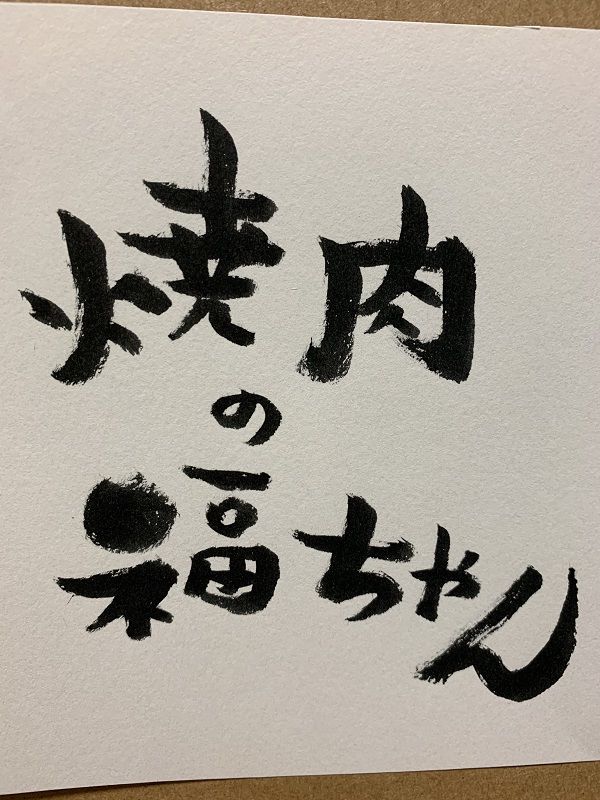 焼肉
の
福ちゃん